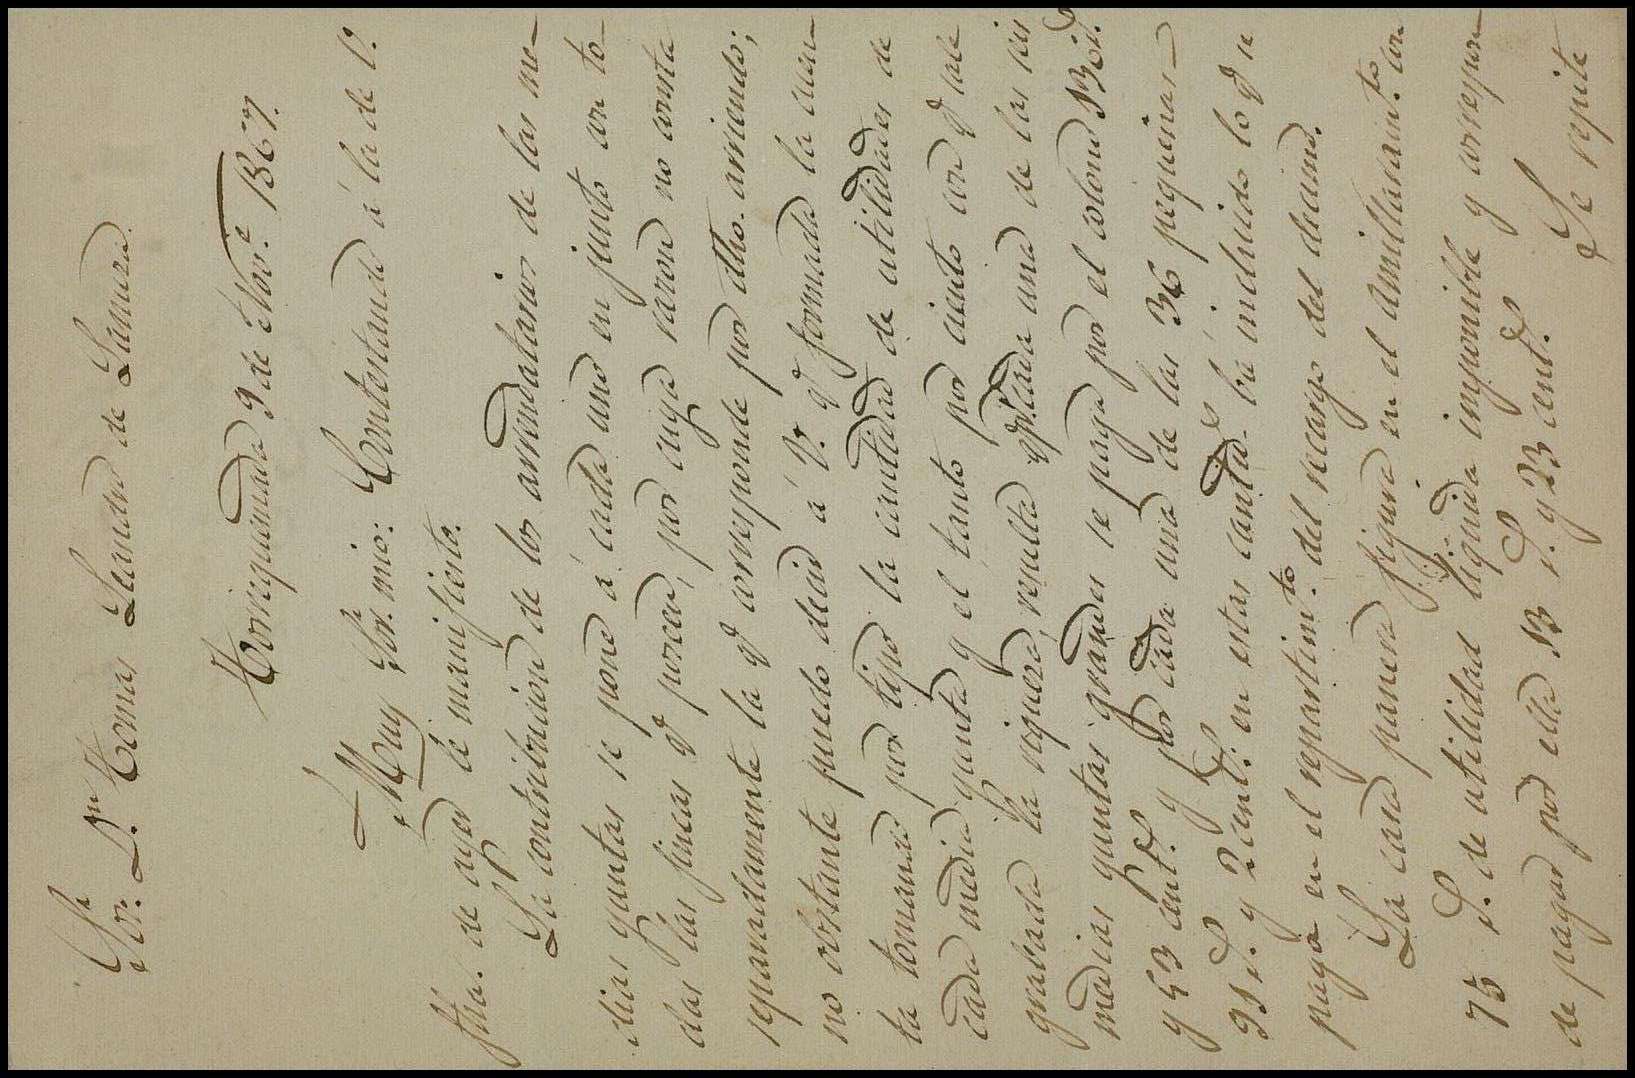 Sr. Dn. Tomas Leandro de Lanuza
Torrequemada 9 de Nove. 1867.
Muy Sor. mio: Contestando á la de V.
fha. de ayer le manifiesto.
La contribucion de los arrendatarios de las me-
dias yuntas se pone á cada uno en junto con to-
das las fincas q poseen, por cuya razon no consta
separadamente la q corresponde por dho. arriendo;
no obstante puedo decir á V. q formada la cuen-
ta tomando por tipo la cantidad de utilidades de
cada media yunta y el tanto por ciento con q sale
grabada la riqueza, resulta q cada una de las seis
medias yuntas grandes se paga por el colono
y 53 cents. y por cada una de las 36 pequeñas
y 2 cent. en estas cantids. bá incluido lo q se
paga en el repartimto. del recargo del decimo.
La casa panera figura en el amillaramto. con
75 de utilidad líquida imponible y correspon-
de pagar por ella y 23 cents.
Se repite